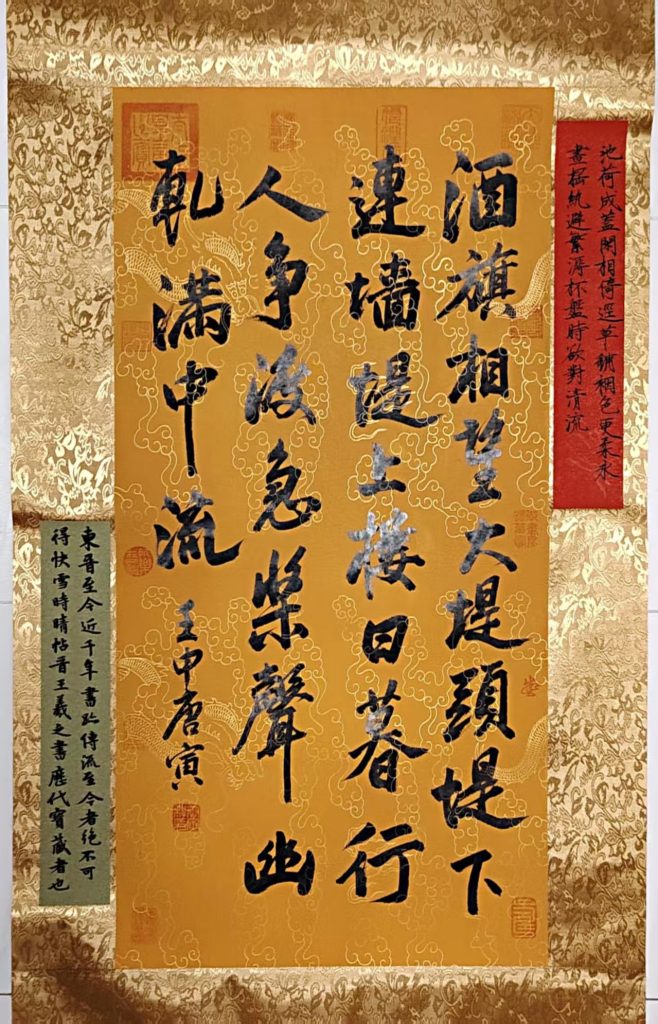 池荷成蓋閑相倚逕草鋪裀色更柔永
晝揺紈避繁溽杯盤時欲對清流
酒旗相望大堤頭堤下
連墻堤上樓日暮行
人争渡急槳聲幽
軋满中流
壬申唐寅
東晉至今近千年書跡傳流至今者絶不可
得快雪時晴帖晉王羲之書歷代寶藏者也